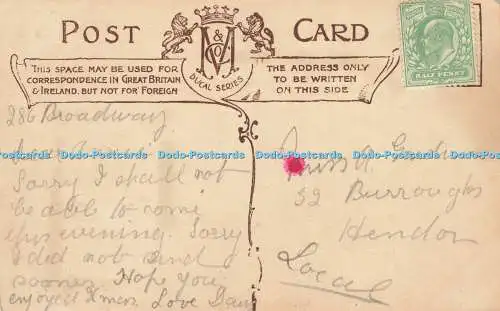 POST CARD
& Co
DUCAL SERIES
THIS SPACE MAY BE USED FOR
CORRESPONDENCE IN GREAT BRITAIN
& IRELAND, BUT NOT FOR FOREIGN
THE ADDRESS ONLY
TO BE WRITTEN
ON THIS SIDE
HALF PENNY
286 Broadway
Dear
Sorry I shall not
be able to come
this evening. Sorry
I did not send
sooner. Hope you
enjoyed Xmas. Love
Miss A.
32 Burroughs
Hendon
Local
Dodo-Postcards Dodo-Postcards Dodo-Postcards Dodo-Postcards Dodo-Postcards